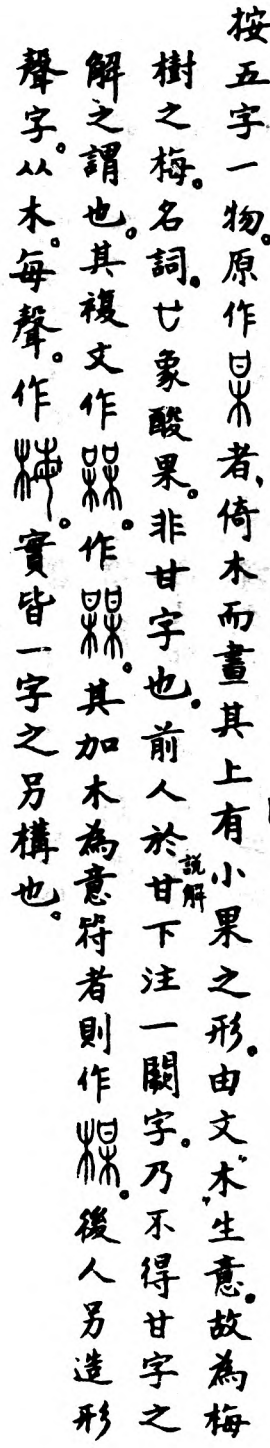 按五字一物。原作某者、倚木而畫其上有小果之形。由文"木"生意。故為梅
樹之梅。名詞。廿象酸果。非甘字也。前人於甘下說解注一闕字。乃不得甘字之
解之謂也。其複文作槑。作𣡾。其加木為意符者則作楳。後人另造形
聲字。从木。每聲。作梅。實皆一字之另構也。